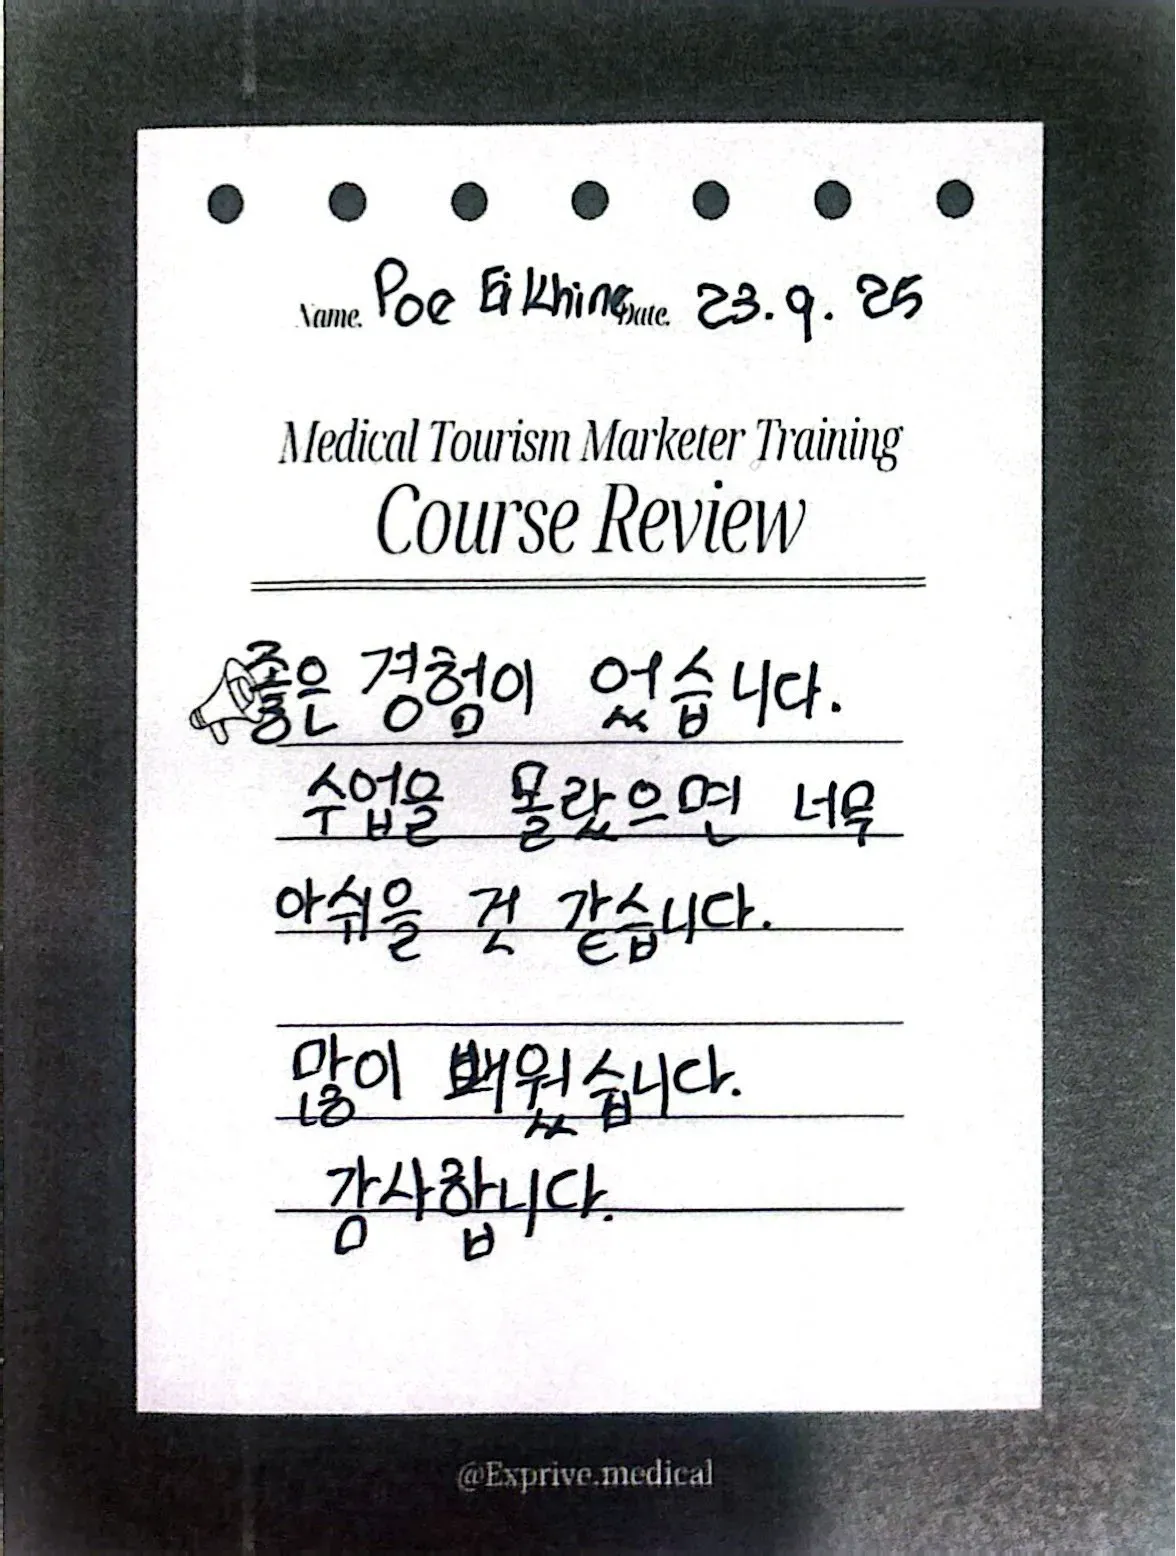 Name. Poe Ei Khine Date. 23.9.25
Medical Tourism Marketer Training
Course Review
좋은 경험이 었습니다.
수업을 몰랐으면 너무
아쉬을 것 같습니다.
많이 빼웠습니다.
감사합니다.
@Exprive.medical